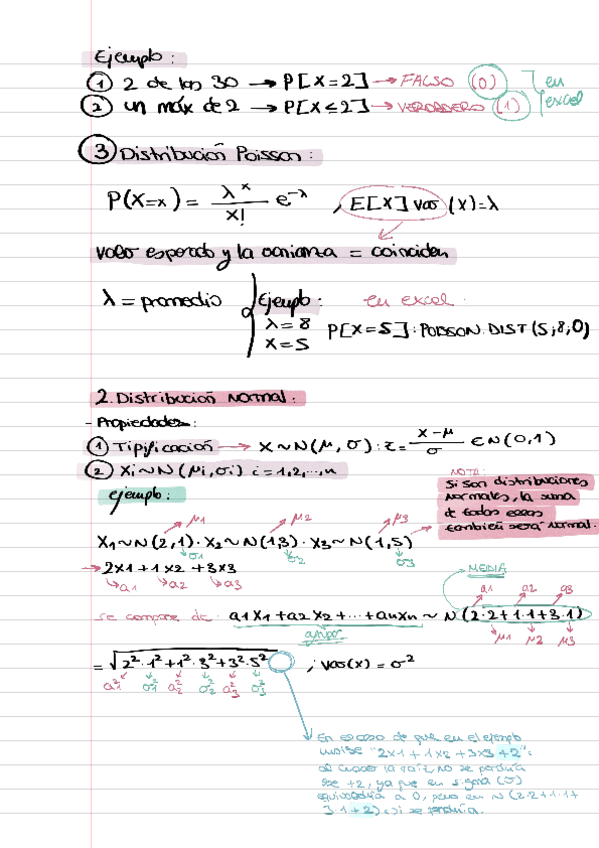 Ejemplo:
① 2 de los 30 → P[X=2] → FALSO (0) en
② un máx de 2 → P[X≤2] → VERDADERO (1) excel
③ Distribución Poisson:
P(X=x) = λ^x / x! e^-λ , E[X] var (x)=λ
valor esperado y la varianza = coinciden
λ = promedio Ejemplo: en excel.
λ=8
x=5 P[X=5]: POISSON.DIST(5;8;0)
2. Distribución Normal:
- Propiedades:
① Tipificación → X∼N(μ,σ): z= x-μ / σ ∈ N(0,1)
② Xi∼N(μi,σi) i=1,2,...,n
ejemplo:
NOTA:
Si son distribuciones
normales, la suma
de todas esas
también será normal.
μ1 μ2 μ3
X1∼N(2,1). X2∼N(1,3). X3∼N(1,5)
σ1 σ2 σ3
→ 2X1+1X2+3X3
a1 a2 a3
MEDIA
a1 a2 a3
se compone de: a1X1+a2X2+...+anXn ∼ N(2·2+1·1+3·1)
μ1 μ2 μ3
= √2²·1²+1²·3²+3²·5² ; var(x)=σ²
a1² σ1² a2² σ2² a3² σ3²
En caso de que en el ejemplo
"2X1+1X2+3X3+2":
la raíz, no se pondría
ese +2, ya que en sigma (σ)
equivaldría a 0, pero en N(2·2+1·1+
3·1+2) si se pondría.